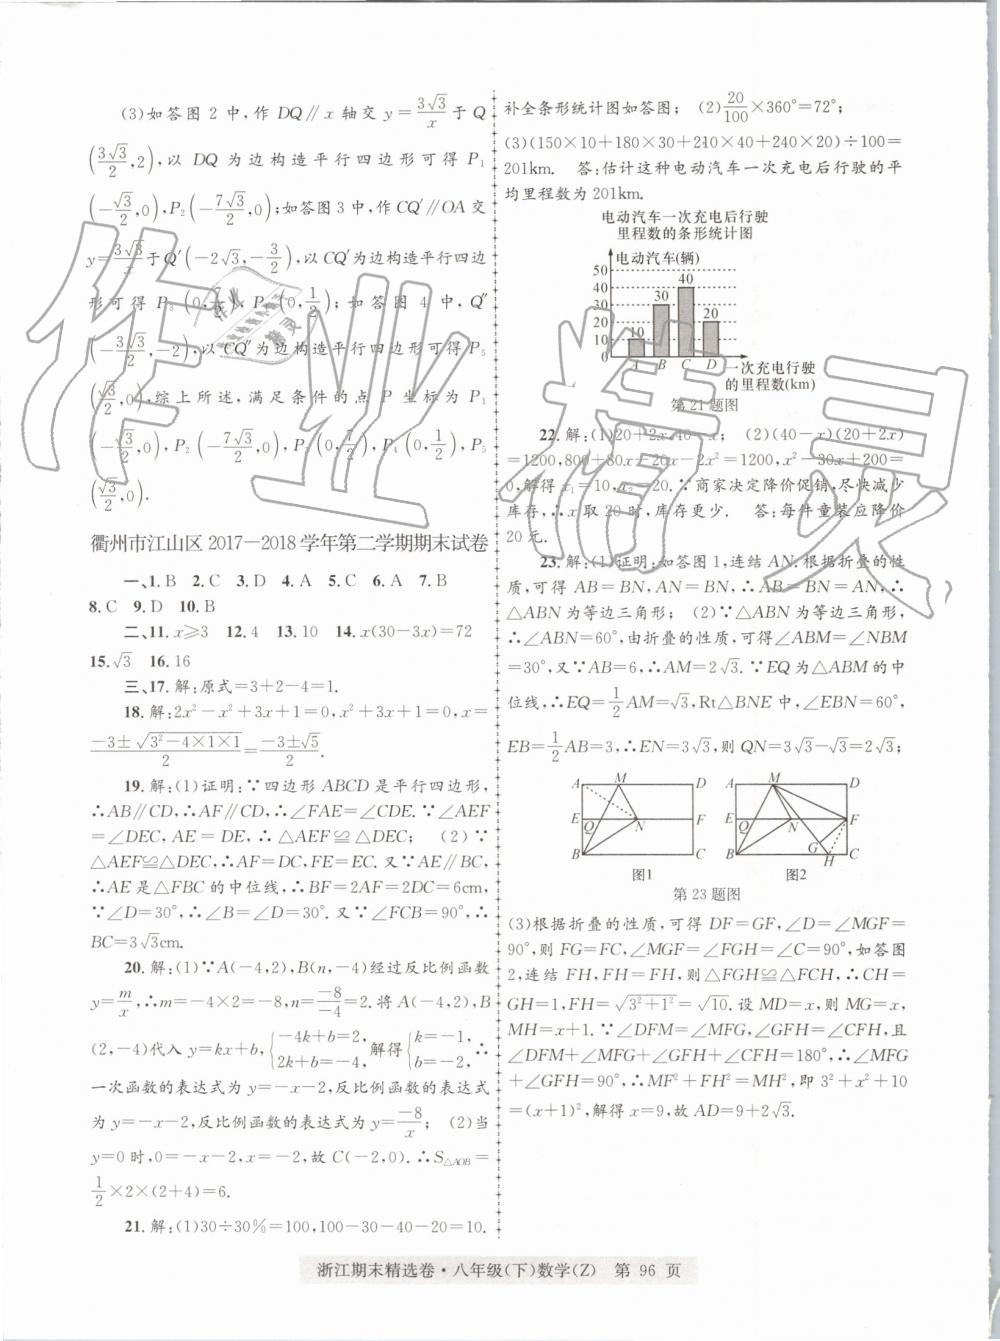 (3)如答图2中,作DQ∥x轴交y=3√3/x于Q
(3√3/2,2),以DQ为边构造平行四边形可得P₁
(-√3/2,0),P₂(-7√3/2,0);如答图3中,作CQ′∥OA交
y=3√3/x于Q′(-2√3,-3/2),以CQ′为边构造平行四边
形可得P₃(0,7/2),P₄(0,1/2);如答图4中,Q″
(-3√3/2,-2),以CQ″为边构造平行四边形可得P₅
(√3/2,0),综上所述,满足条件的点P坐标为P₁
(-√3/2,0),P₂(-7√3/2,0),P₃(0,7/2),P₄(0,1/2),P₅
(√3/2,0).
衢州市江山区2017—2018学年第二学期期末试卷
一、1.B 2.C 3.D 4.A 5.C 6.A 7.B
8.C 9.D 10.B
二、11.x≥3 12.4 13.10 14.x(30-3x)=72
15.√3 16.16
三、17.解:原式=3+2-4=1.
18.解:2x²-x²+3x+1=0,x²+3x+1=0,x=
(-3±√(3²-4×1×1))/2=(-3±√5)/2.
19.解:(1)证明:∵四边形ABCD是平行四边形,
∴AB∥CD,∴AF∥CD,∴∠FAE=∠CDE.∵∠AEF
=∠DEC,AE=DE,∴△AEF≌△DEC; (2)∵
△AEF≌△DEC,∴AF=DC,FE=EC.又∵AE∥BC,
∴AE是△FBC的中位线,∴BF=2AF=2DC=6cm,
∵∠D=30°,∴∠B=∠D=30°.又∵∠FCB=90°,∴
BC=3√3cm.
20.解:(1)∵A(-4,2),B(n,-4)经过反比例函数
y=m/x,∴m=-4×2=-8,n=-8/-4=2.将A(-4,2),B
(2,-4)代入y=kx+b,{-4k+b=2,2k+b=-4,解得{k=-1,b=-2,∴
一次函数的表达式为y=-x-2,反比例函数的表达式
为y=-x-2,反比例函数的表达式为y=-8/x; (2)当
y=0时,0=-x-2,x=-2,故C(-2,0).∴S△AOB=
1/2×2×(2+4)=6.
21.解:(1)30÷30%=100,100-30-40-20=10.
补全条形统计图如答图; (2)20/100×360°=72°;
(3)(150×10+180×30+210×40+240×20)÷100=
201km. 答:估计这种电动汽车一次充电后行驶的平
均里程数为201km.
电动汽车一次充电后行驶
里程数的条形统计图
电动汽车(辆)
50
40
30
20
10
0
10
30
40
20
A B C D
一次充电行驶
的里程数(km)
第21题图
22.解:(1)20+2x,40-x; (2)(40-x)(20+2x)
=1200,800+80x-20x-2x²=1200,x²-30x+200=
0,解得x₁=10,x₂=20.∵商家决定降价促销,尽快减少
库存,∴x取20时,库存更少. 答:每件童装应降价
20元.
23.解:(1)证明:如答图1,连结AN.根据折叠的性
质,可得AB=BN,AN=BN,∴AB=BN=AN,∴
△ABN为等边三角形; (2)∵△ABN为等边三角形,
∴∠ABN=60°,由折叠的性质,可得∠ABM=∠NBM
=30°,又∵AB=6,∴AM=2√3.∵EQ为△ABM的中
位线,∴EQ=1/2AM=√3,Rt△BNE中,∠EBN=60°,
EB=1/2AB=3,∴EN=3√3,则QN=3√3-√3=2√3;
A M D
E Q N F
B C
图1
A M D
E Q N F
G
B H C
图2
第23题图
(3)根据折叠的性质,可得DF=GF,∠D=∠MGF=
90°,则FG=FC,∠MGF=∠FGH=∠C=90°,如答图
2,连结FH,FH=FH,则△FGH≌△FCH,∴CH=
GH=1,FH=√(3²+1²)=√10.设MD=x,则MG=x,
MH=x+1.∵∠DFM=∠MFG,∠GFH=∠CFH,且
∠DFM+∠MFG+∠GFH+∠CFH=180°,∴∠MFG
+∠GFH=90°,∴MF²+FH²=MH²,即3²+x²+10
=(x+1)²,解得x=9,故AD=9+2√3.
浙江期末精选卷·八年级(下)数学(Z) 第96页
作业精灵